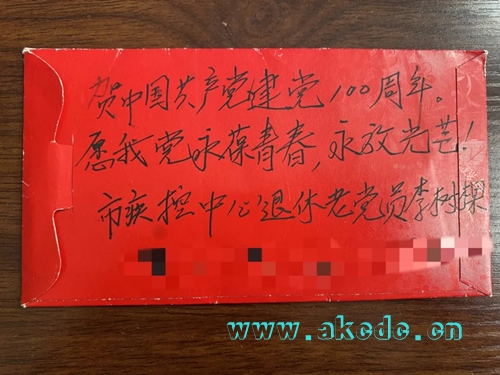 贺中国共产党建党100周年。
愿我党永葆青春，永放光芒！
市疾控中心退休老党员李树堂
www.akcdc.cn